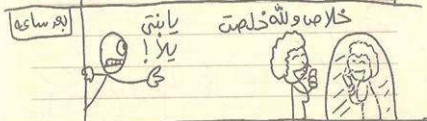 بعد ساعة
يا بنتي
يلا!
خلاص والله خلصت